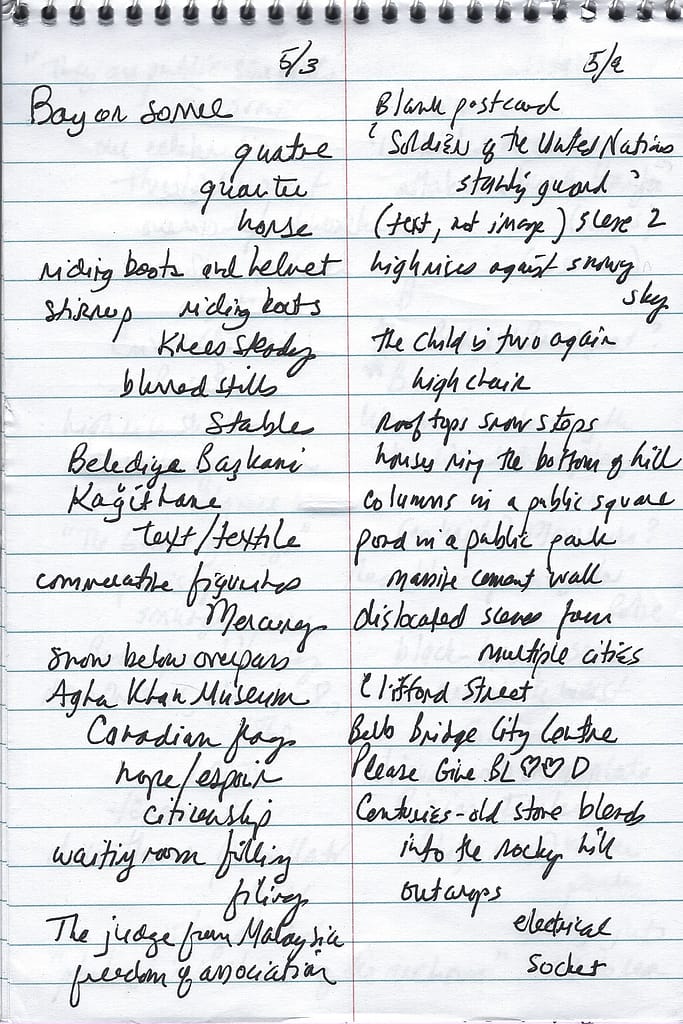 5/3
Bay or somme
quatre
quarter
horse
riding boots and helmet
stirrup riding boots
Knees steady
blurred stills
Stables
Belediye Başkani
Kağithane
text/textile
commerative figurines
Mercury
snow below overpass
Agha Khan Museum
Canadian flags
hope/espoir
citizenship
waiting room filling
filings
The judge from Malaysia
freedom of association
5/9
Blank postcard
"Soldier of the United Nations
standing guard"
(text, not image) slere 2
highrises against snowy
sky
the child is two again
high chair
rooftops snow stops
houses ring the bottom of hill
columns in a public square
pond in a public park
massive cement wall
dislocated scenes from
multiple cities
Clifford Street
Bello Bridge City Centre
Please Give BL♡♡D
Centuries-old stone blends
into the rocky hill
outcrops
electrical
socket